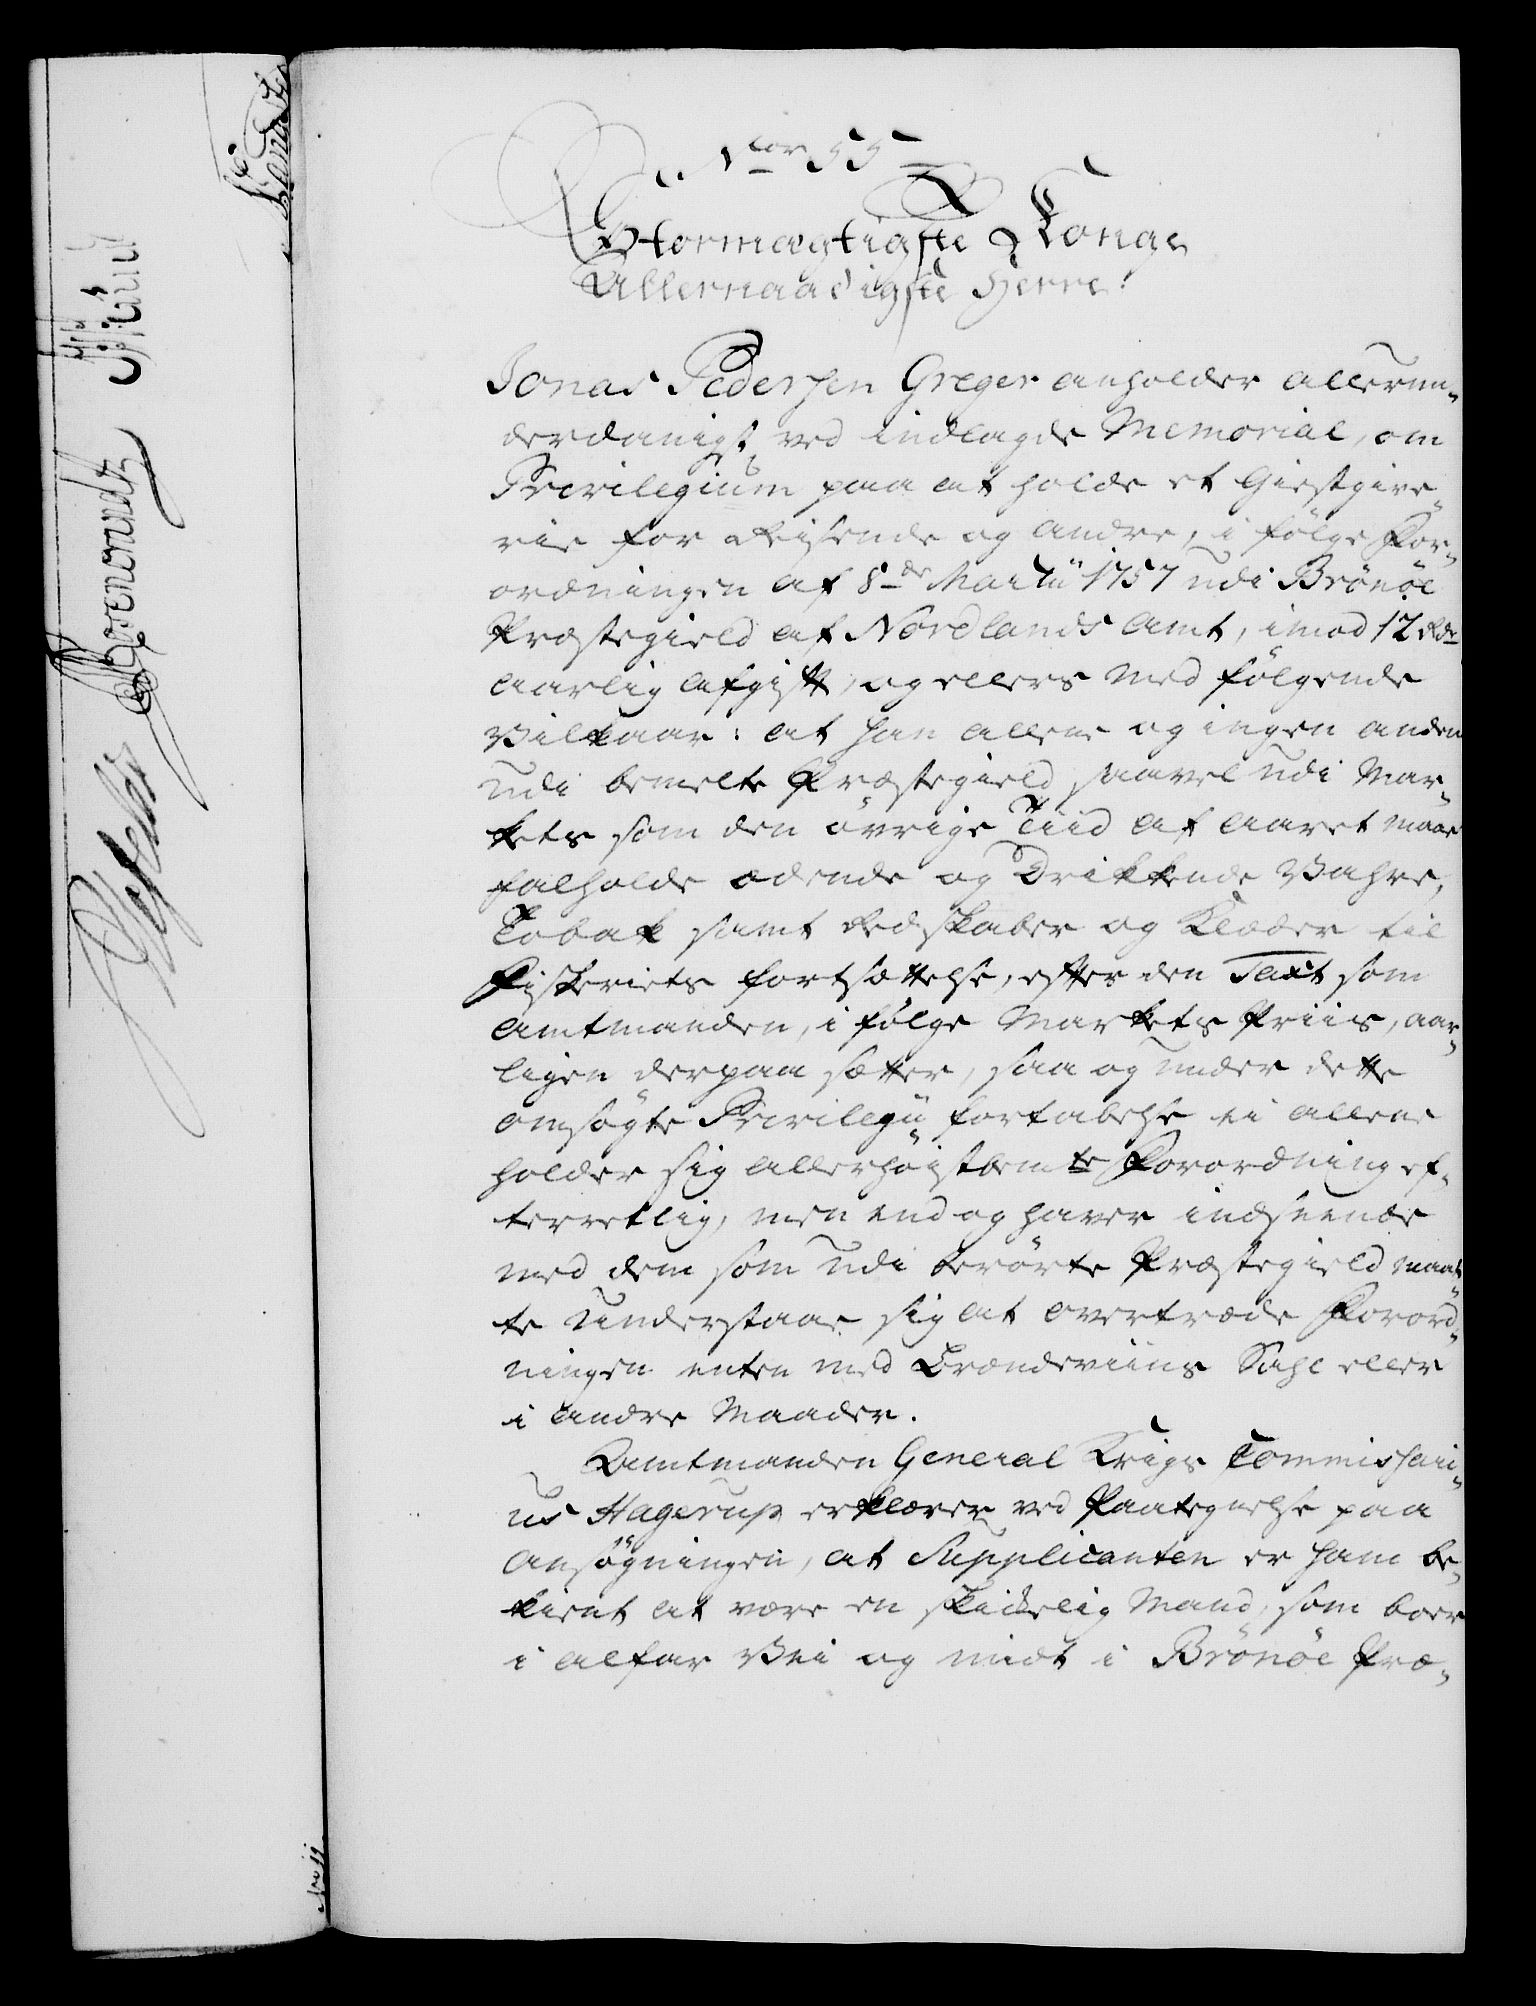 Nor 55
Stormægtigste Konge
Allernaadigste Herre!
Jonas Pedersen Greger anholder allerun-
derdanigst ved indlagde Memorial, om
Privilegium paa at holde et Giestgive-
rie for Reisende og andre, i følge For-
ordningen af 8de Martii 1757 udi Brönöe
Præstegield af Nordlands Amt, imod 12 Rdr
aarlig Afgift, og ellers med følgende
Vilkaar: at han allene og ingen anden
udi bemelte Præstegield saavel udi Mar-
kets som den övrige Tiid af Aaret maae
falholde ædende og Drikkende Vahre,
Tobak samt Redskaber og Klæder til
Fiskeriets fortsættelse, efter den Taxt som
Amtmanden, i følge Markets Priis, aar-
ligen derpaa sætter, saa og under dette
ansøgte Privilegii fortabelse ei allene
holder sig allerhöistbemte Forordning ef-
terretlig, men end og haver indseende
med dem som udi berörte Præstegield maat-
te understaae sig at overtræde Forord-
ningen enten med Brændeviins Sahl eller
i andre Maader.
Amtmanden General Krigs Commissari-
us Hagerup erklærer ved Paategnelse paa
Ansøgningen, at Supplicanten er ham be-
kient at være en skikkelig Mand, som boer
i alfar Vei og midt i Brönöe Præ-